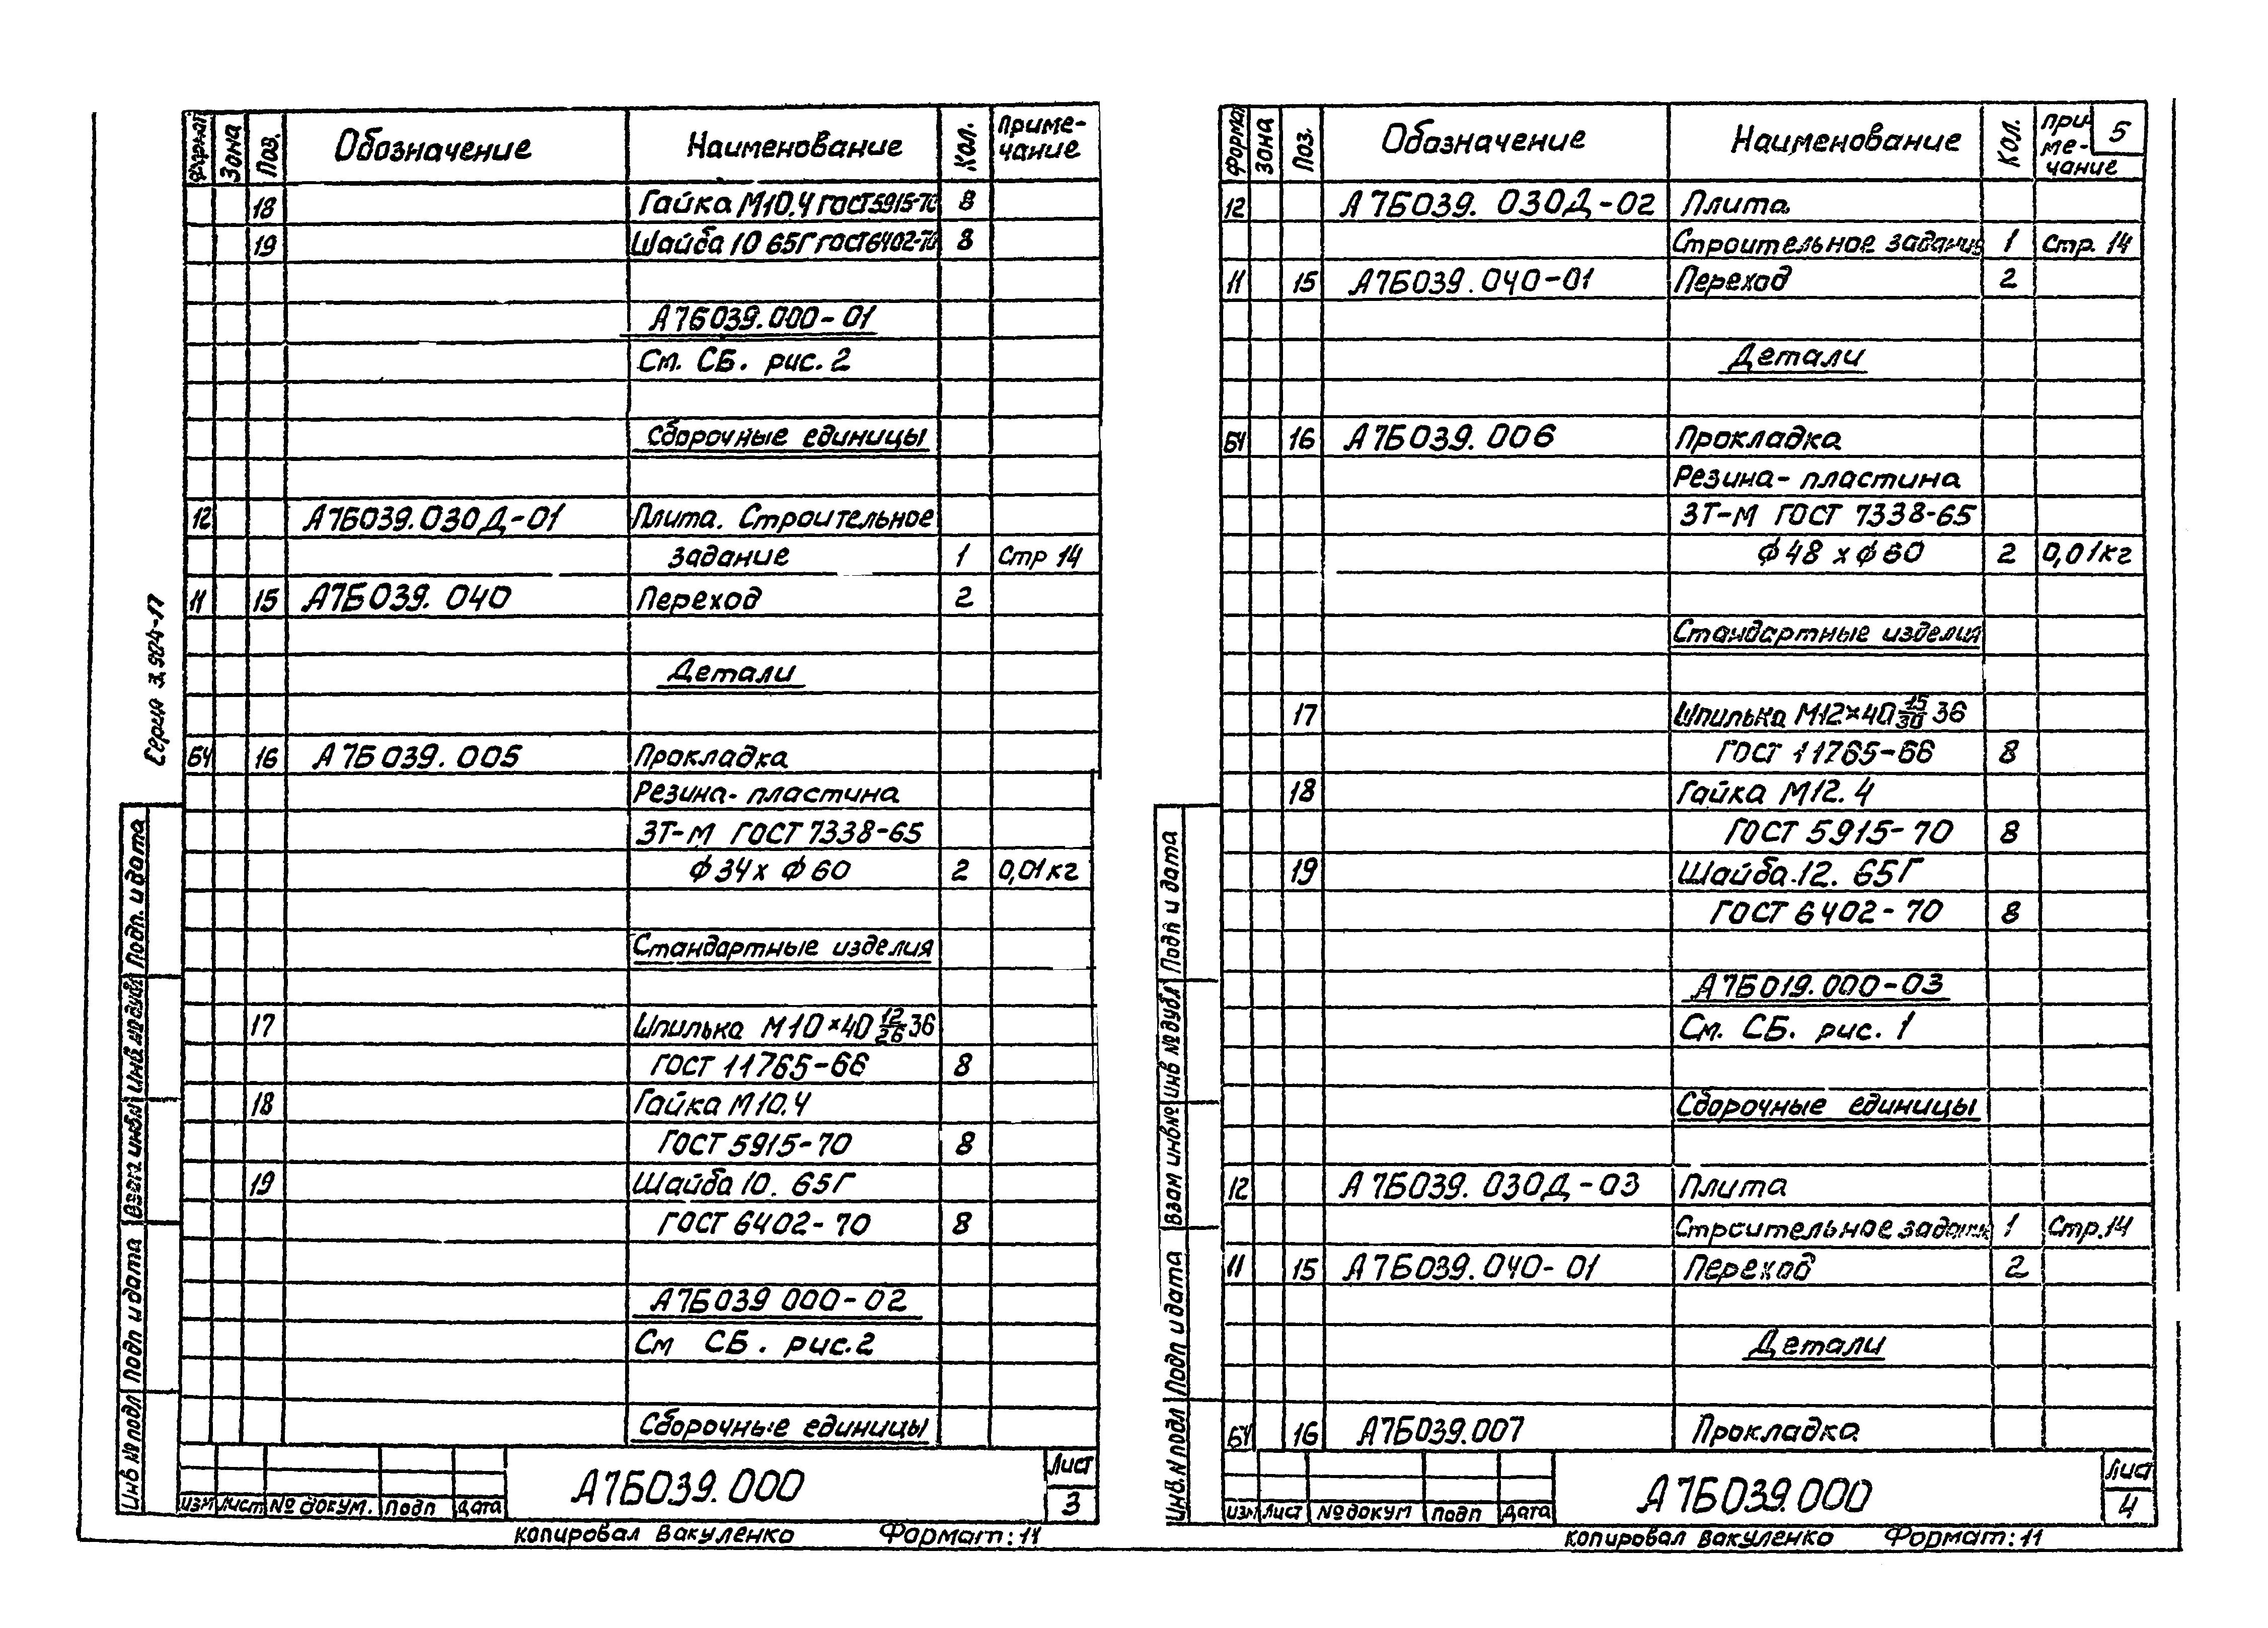 Формат Зона Поз. Обозначение Наименование Кол. Приме-
чание
18 Гайка М10.4 ГОСТ5915-70 8
19 Шайба 10 65Г ГОСТ6402-70 8
А7Б039.000-01
См. СБ. рис. 2
Сборочные единицы
12 А7Б039.030Д-01 Плита. Строительное
задание 1 Стр 14
11 15 А7Б039.040 Переход 2
Детали
БЧ 16 А7Б039.005 Прокладка
Резина-пластина
3Т-М ГОСТ 7338-65
ф34х ф60 2 0,01кг
Стандартные изделия
17 Шпилька М10×40 12/26 36
ГОСТ 11765-66 8
18 Гайка М10.4
ГОСТ 5915-70 8
19 Шайба 10. 65Г
ГОСТ 6402-70 8
А7Б039 000-02
См СБ. рис. 2
Сборочные единицы
Серия 3.904-17
Подп. и дата
Инв № дубл
Взам инв№
Подп и дата
Инв № подл
Изм Лист № докум. Подп Дата
А7Б039.000
Лист
3
Копировал Вакуленко Формат: 11
Формат Зона Поз. Обозначение Наименование Кол. При-
ме-
чание
5
12 А7Б039.030Д-02 Плита
Строительное задание 1 Стр. 14
11 15 А7Б039.040-01 Переход 2
Детали
БЧ 16 А7Б039.006 Прокладка
Резина-пластина
3Т-М ГОСТ 7338-65
ф48 х ф60 2 0,01кг
Стандартные изделия
17 Шпилька М12×40 15/30 36
ГОСТ 11765-66 8
18 Гайка М12.4
ГОСТ 5915-70 8
19 Шайба.12. 65Г
ГОСТ 6402-70 8
А7Б019.000-03
См. СБ. рис. 1
Сборочные единицы
12 А7Б039.030Д-03 Плита
Строительное задание 1 Стр.14
11 15 А7Б039.040-01 Переход 2
Детали
БЧ 16 А7Б039.007 Прокладка
Подп и дата
Инв № дубл
Взам инв№
Подп и дата
Инв.N подл
Изм Лист № докум Подп Дата
А7Б039.000
Лист
4
Копировал Вакуленко Формат: 11